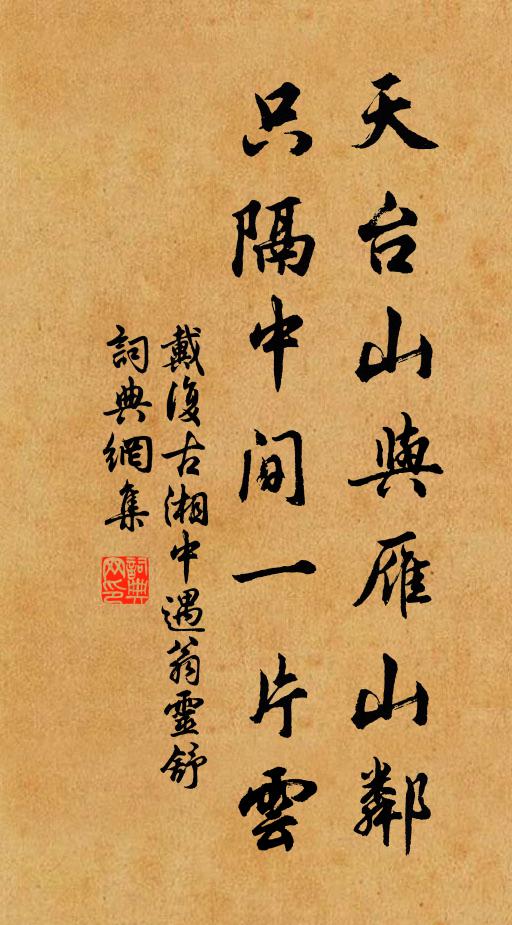 天台山與雁山鄰
只隔中间一片雲
戴復古湘中遇翁靈舒
詞典網集
詞典网印